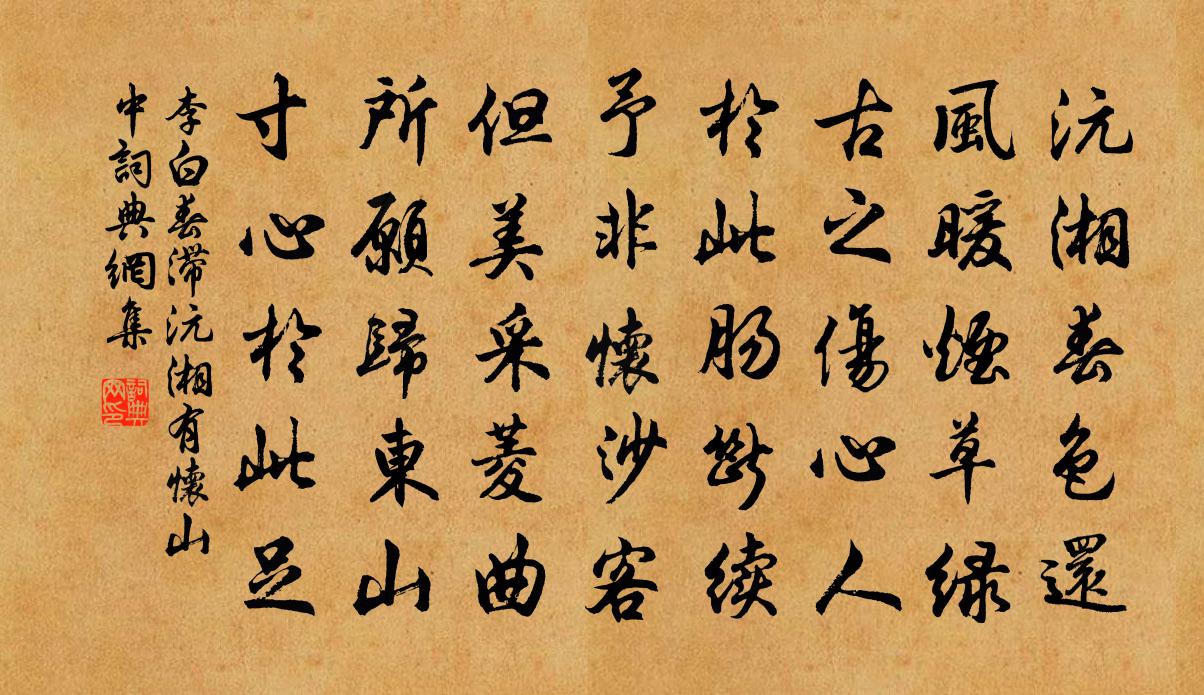 沅湘春色還
風暖煙草綠
古之傷心人
於此腸斷續
予非懷沙客
但美采菱曲
所願歸東山
寸心於此足
李白春滯沅湘有懷山
中詞典網集
詞典网印